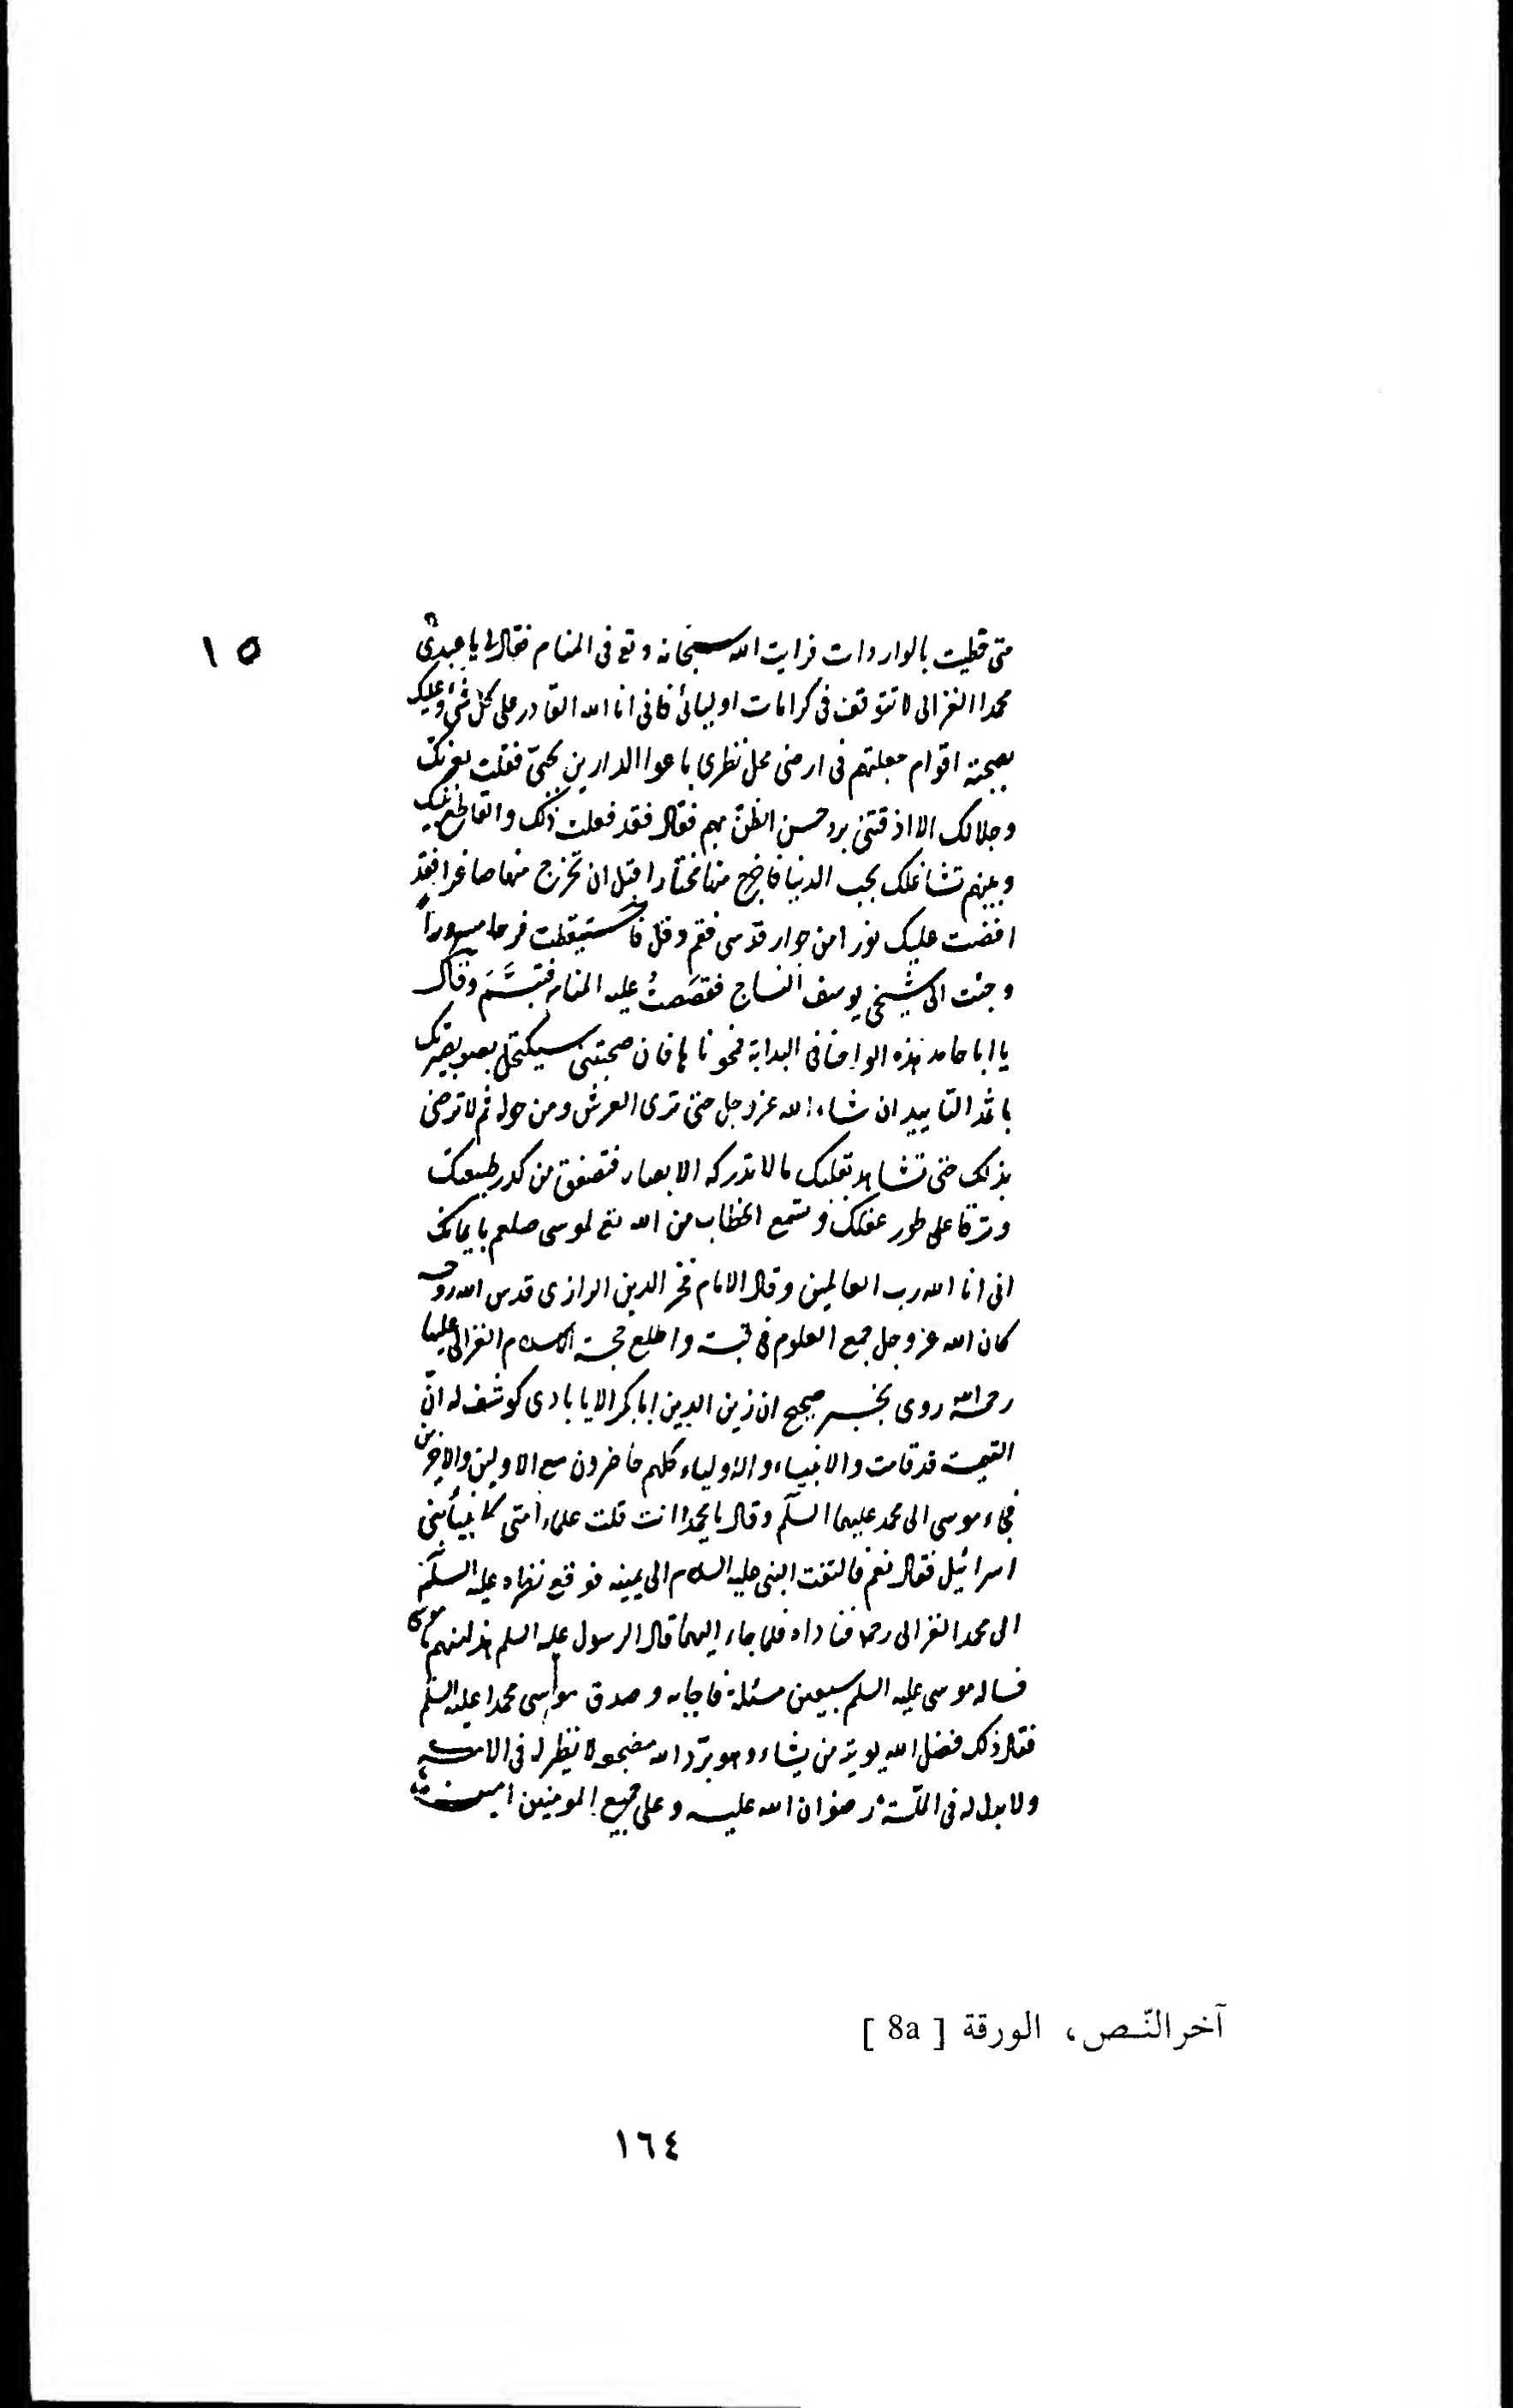 ١٥
متى حظيت بالواردات فرايت الله سبحانه وتع فى المنام فقال لى يا عبدى
محمدا الغزالى لا تتوقف فى كرامات اوليائى فانى انا الله القادر على كل شىء وعليك
بصحبة اقوام جعلتهم فى ارضى محل نظرى باعوا الدارين بحبى فقلت بعزتك
وجلالك الا اذقتنى برد حسن الظن بهم فقال فقد فعلت ذلك والقاطع بينك
وبينهم تشاغلك بحب الدنيا فاخرج منها مختارا قبل ان تخرج منها صاغرا فقد
افضت عليك نورا من جوار قدسى فقم وقل فاستيقظت فرحا مسرورا
وجئت الى شيخى يوسف النساج فقصصت عليه المنام فتبسم وقال
يا ابا حامد هذه الواحنا فى البداية فمحوناها فان صحبتنى سيكتحل بصر بصيرتك
باثمد التاييد ان شاء الله عز وجل حتى ترى العرش ومن حوله ثم لا ترضى
بذلك حتى تشاهد بقلبك ما لا تدركه الابصار فتصفق من كدر طبيعتك
وترقا على طور عقلك وتسمع الخطاب من الله تع لموسى صلعم
انى انا الله رب العالمين وقال الامام فخر الدين الرازى قدس الله روحه
كان الله عز وجل جمع العلوم فى قبة واطلع حجة الاسلام الغزالى عليها
رحمه الله روى بخبر صحيح ان زين الدين ابا بكر الايابادى كوشف له ان
القيمة قد قامت والانبياء والاولياء كلهم حاضرون مع الاولين والاخرين
فجاء موسى الى محمد عليهما السلم وقال يا محمد اانت قلت علماء امتى كانبياء بنى
اسرائيل فقال نعم فالتفت النبى عليه السلام الى يمينه فوقع نظره عليه السلم
الى محمد الغزالى رحمه فناداه فلما جاء اليهما قال الرسول عليه السلم هذا منهم يا موسى
فساله موسى عليه السلم سبعين مسئلة فاجابه وصدق موسى محمدا عليه السلم
فقال ذلك فضل الله يوتيه من يشاء وهو برد الله مضجعه لا نظير له فى الامة
ولا بدل له فى الملة رضوان الله عليه وعلى جميع المومنين امين
آخر النّـص ، الورقة [ 8a ]
١٦٤